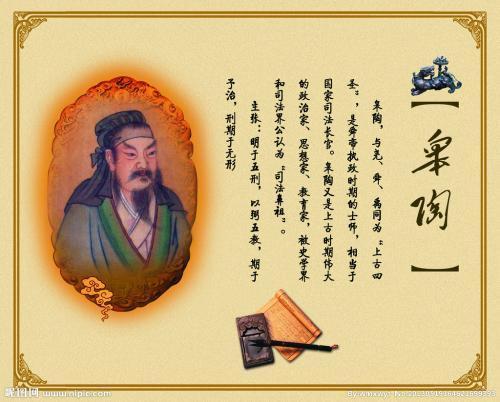 【皋陶】
皋陶，与尧、舜、禹同为“上古四
圣”，是舜帝执政时期的士师，相当于
国家司法长官。皋陶又是上古时期伟大
的政治家、思想家、教育家，被史学界
和司法界公认为“司法鼻祖”。
主张：明于五刑，以弼五教，期于
予治，刑期于无形
昵图网 www.nipic.com